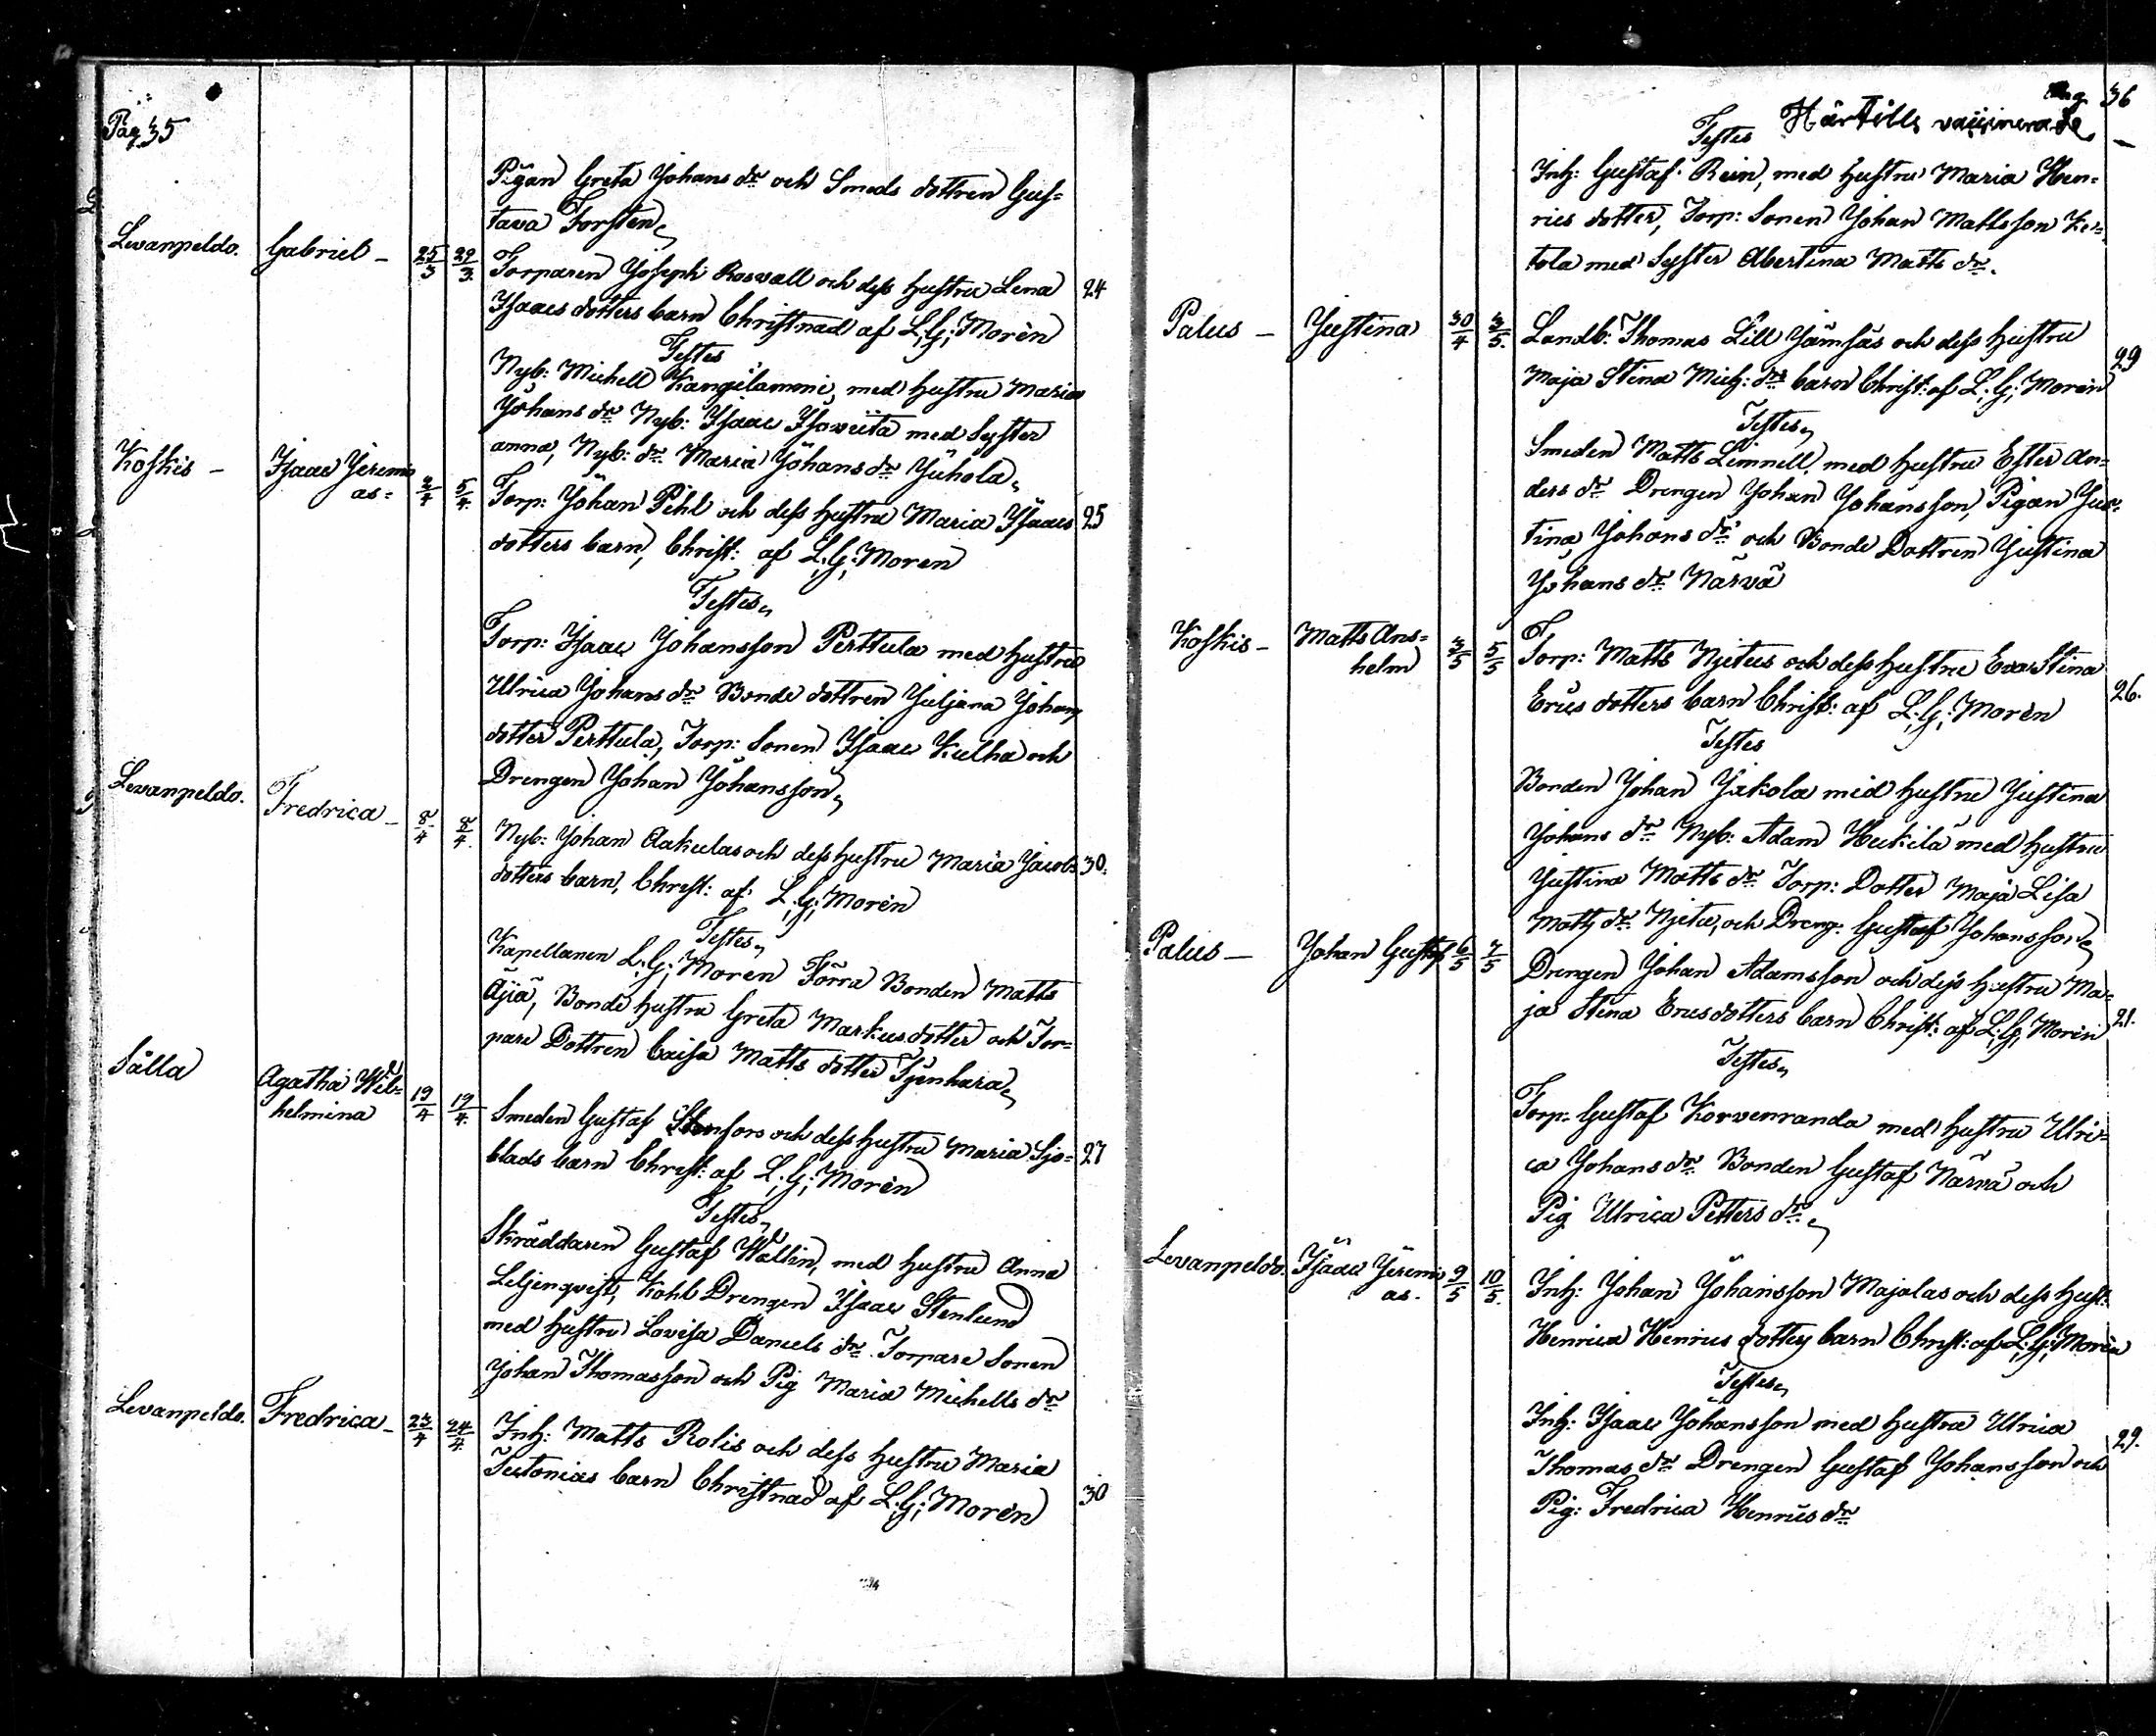 Pag 35
Pigan Greta Johans dr och Smeds dottren Gus=
tava Forsten
Levanpeldo. Gabriel - 25/3 29/3 Torparen Joseph Roswall och dess hustru Lena 24
Isaacs dotters barn Christnad af L:G: Morèn
Testes
Nyb: Michell Kangilammi, med hustru Maria
Johans dr Nyb: Isaac Isowiita med Syster
anna, Nyb: dr Maria Johans dr Juhola,
Koskis - Isaac Jeremi 2/4 5/4 Torp: Johan Pihl och dess hustru Maria Isaacs 25
as=
dotters barn, Christ: af L:G: Moren
Testes,
Torp: Isaac Johansson Perttula med hustru
Ulrica Johans dr Bonde dottren Juljana Johans
dotter Perttula, Torp: Sonen Isaac Kulha och
Drengen Johan Johansson,
Levanpeldo. Fredrica - 8/4 8/4 Nyb: Johan Aakulas och dess hustru Maria Jacobs 30.
dotters barn, Christ: af L:G: Morèn
Testes,
Kapellanen L:G: Moren Förra Bonden Matts
Äjiä, Bonde hustru Greta Markusdotter och Tor=
pare Dottren Caisa Matts dotter
Sålla Agatha Wil= 19/4 19/4 Smeden Gustaf och dess hustru Maria Sjö= 27
helmina
blads barn Christ: af L:G: Morèn
Testes,
Skräddaren Gustaf Wallin, med hustru Anna
Liljenqvist, Kohl Drengen Isaac Stenlund
med hustru Lovisa Daniels dr Torpare Sonen
Johan Thomasson och Pig Maria Michells dr
Levanpeldo. Fredrica - 23/4 24/4 Inh: Matts Rolis och dess hustru Maria
Tustonias barn Christnad af L:G: Morèn 30
Pag 36
Härtills vaccinerade
Testes
Inh: Gustaf Rein, med hustru Maria Hen=
rics dotter, Torp: Sonen Johan Mattsson Ker=
tola med Syster Abertina Matts dr.
Palus - Justina 30/4 3/5 Landb: Thomas Lill Jämsäs och dess hustru
Maja Stina Mich: drs barn Christ: af L:G: Morèn 29
Testes,
Smeden Matts Limnell, med hustru Ester An=
ders dr Drengen Johan Johansson, Pigan Jus=
tina Johans dr och Bonde Dottren Justina
Johans dr Närvä
Koskis - Matts Ans= 3/5 5/5 Torp: Matts Njetus och dess hustru Eva Stina
helm
Erics dotters barn Christ: af L:G: Morèn 26.
Testes
Bonden Johan Jakola med hustru Justina
Johans dr Nyb: Adam Heikilä med hustru
Justina Matts dr Torp: Dotter Maja Lisa
Matts dr Njetu, och Dreng: Gustaf Johansson
Palus - Johan Gustaf 6/5 7/5 Drengen Johan Adamsson och dess hustru Ma=
ja Stina Ericsdotters barn Christ: af L:G: Morèn 21.
Testes,
Torp: Gustaf Korvenranda med hustru Ulri=
ca Johans dr Bonden Gustaf Närvä och
Pig Ulrica Petters dr
Levanpeldo. Isaac Jeremi 9/5 10/5 Inh: Johan Johansson Majalas och dess Hust:
as.
Henrica Henrics dotters barn Christ: af L:G: Morèn
Testes,
Inh: Isaac Johansson med hustru Ulrica
Thomas dr Drengen Gustaf Johansson och 29.
Pig: Fredrica Henrics dr